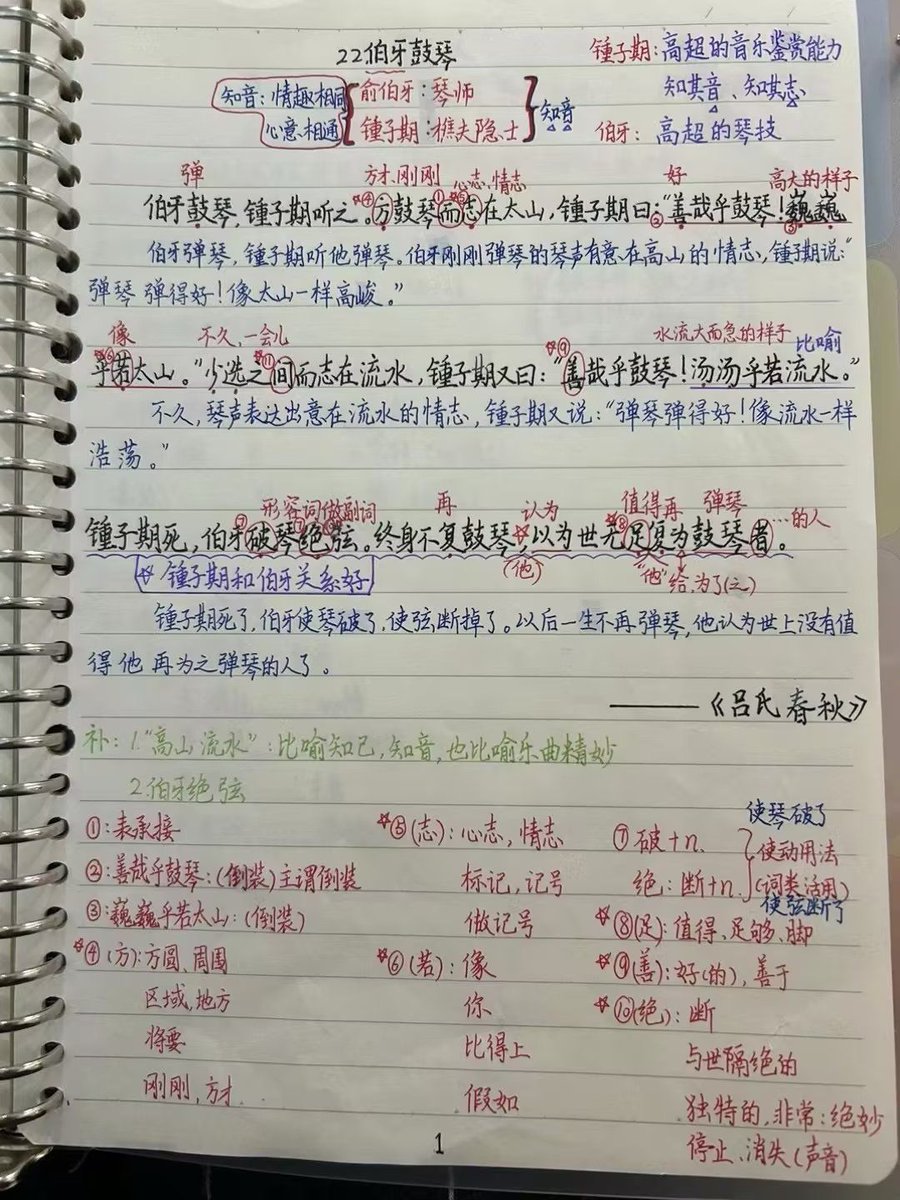 22伯牙鼓琴
锺子期:高超的音乐鉴赏能力
知其音、知其志
伯牙:高超的琴技
知音:情趣相同
心意相通
俞伯牙:琴师
锺子期:樵夫隐士
知音
弹 方才、刚刚 心志,情志 好 高大的样子
伯牙鼓琴,锺子期听之。④方鼓琴①而⑤志在太山,锺子期曰:“②善哉乎鼓琴!③巍巍
伯牙弹琴,锺子期听他弹琴。伯牙刚刚弹琴的琴声有意在高山的情志,锺子期说:“
弹琴弹得好!像太山一样高峻。”
像 不久,一会儿 水流大而急的样子 比喻
乎⑥若太山。”少选之⑪间而志在流水,锺子期又曰:“⑨善哉乎鼓琴!汤汤乎若流水。”
不久,琴声表达出意在流水的情志,锺子期又说:“弹琴弹得好!像流水一样
浩荡。”
形容词做副词 再 认为 值得再 弹琴 …的人
锺子期死,伯牙⑦破琴绝弦。终身不复鼓琴,以为世无⑧足复为鼓琴者。
☆锺子期和伯牙关系好
(他) “他”给、为了(之)
锺子期死了,伯牙使琴破了,使弦断掉了。以后一生不再弹琴,他认为世上没有值
得他再为之弹琴的人了。
——《吕氏春秋》
补:1.“高山流水”:比喻知己,知音,也比喻乐曲精妙
2.伯牙绝弦
①:表承接
②:善哉乎鼓琴:(倒装)主谓倒装
③:巍巍乎若太山:(倒装)
☆④(方):方圆、周围
区域,地方
将要
刚刚,方才
☆⑤(志):心志,情志
标记,记号
做记号
☆⑥(若):像
你
比得上
假如
使琴破了
⑦破+n.
绝:断+n.
使动用法
(词类活用)
使弦断了
☆⑧(足):值得、足够、脚
☆⑨(善):好(的),善于
☆⑩(绝):断
与世隔绝的
独特的,非常:绝妙
停止、消失(声音)
1